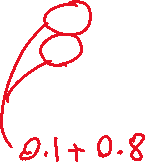 0.1 + 0.8